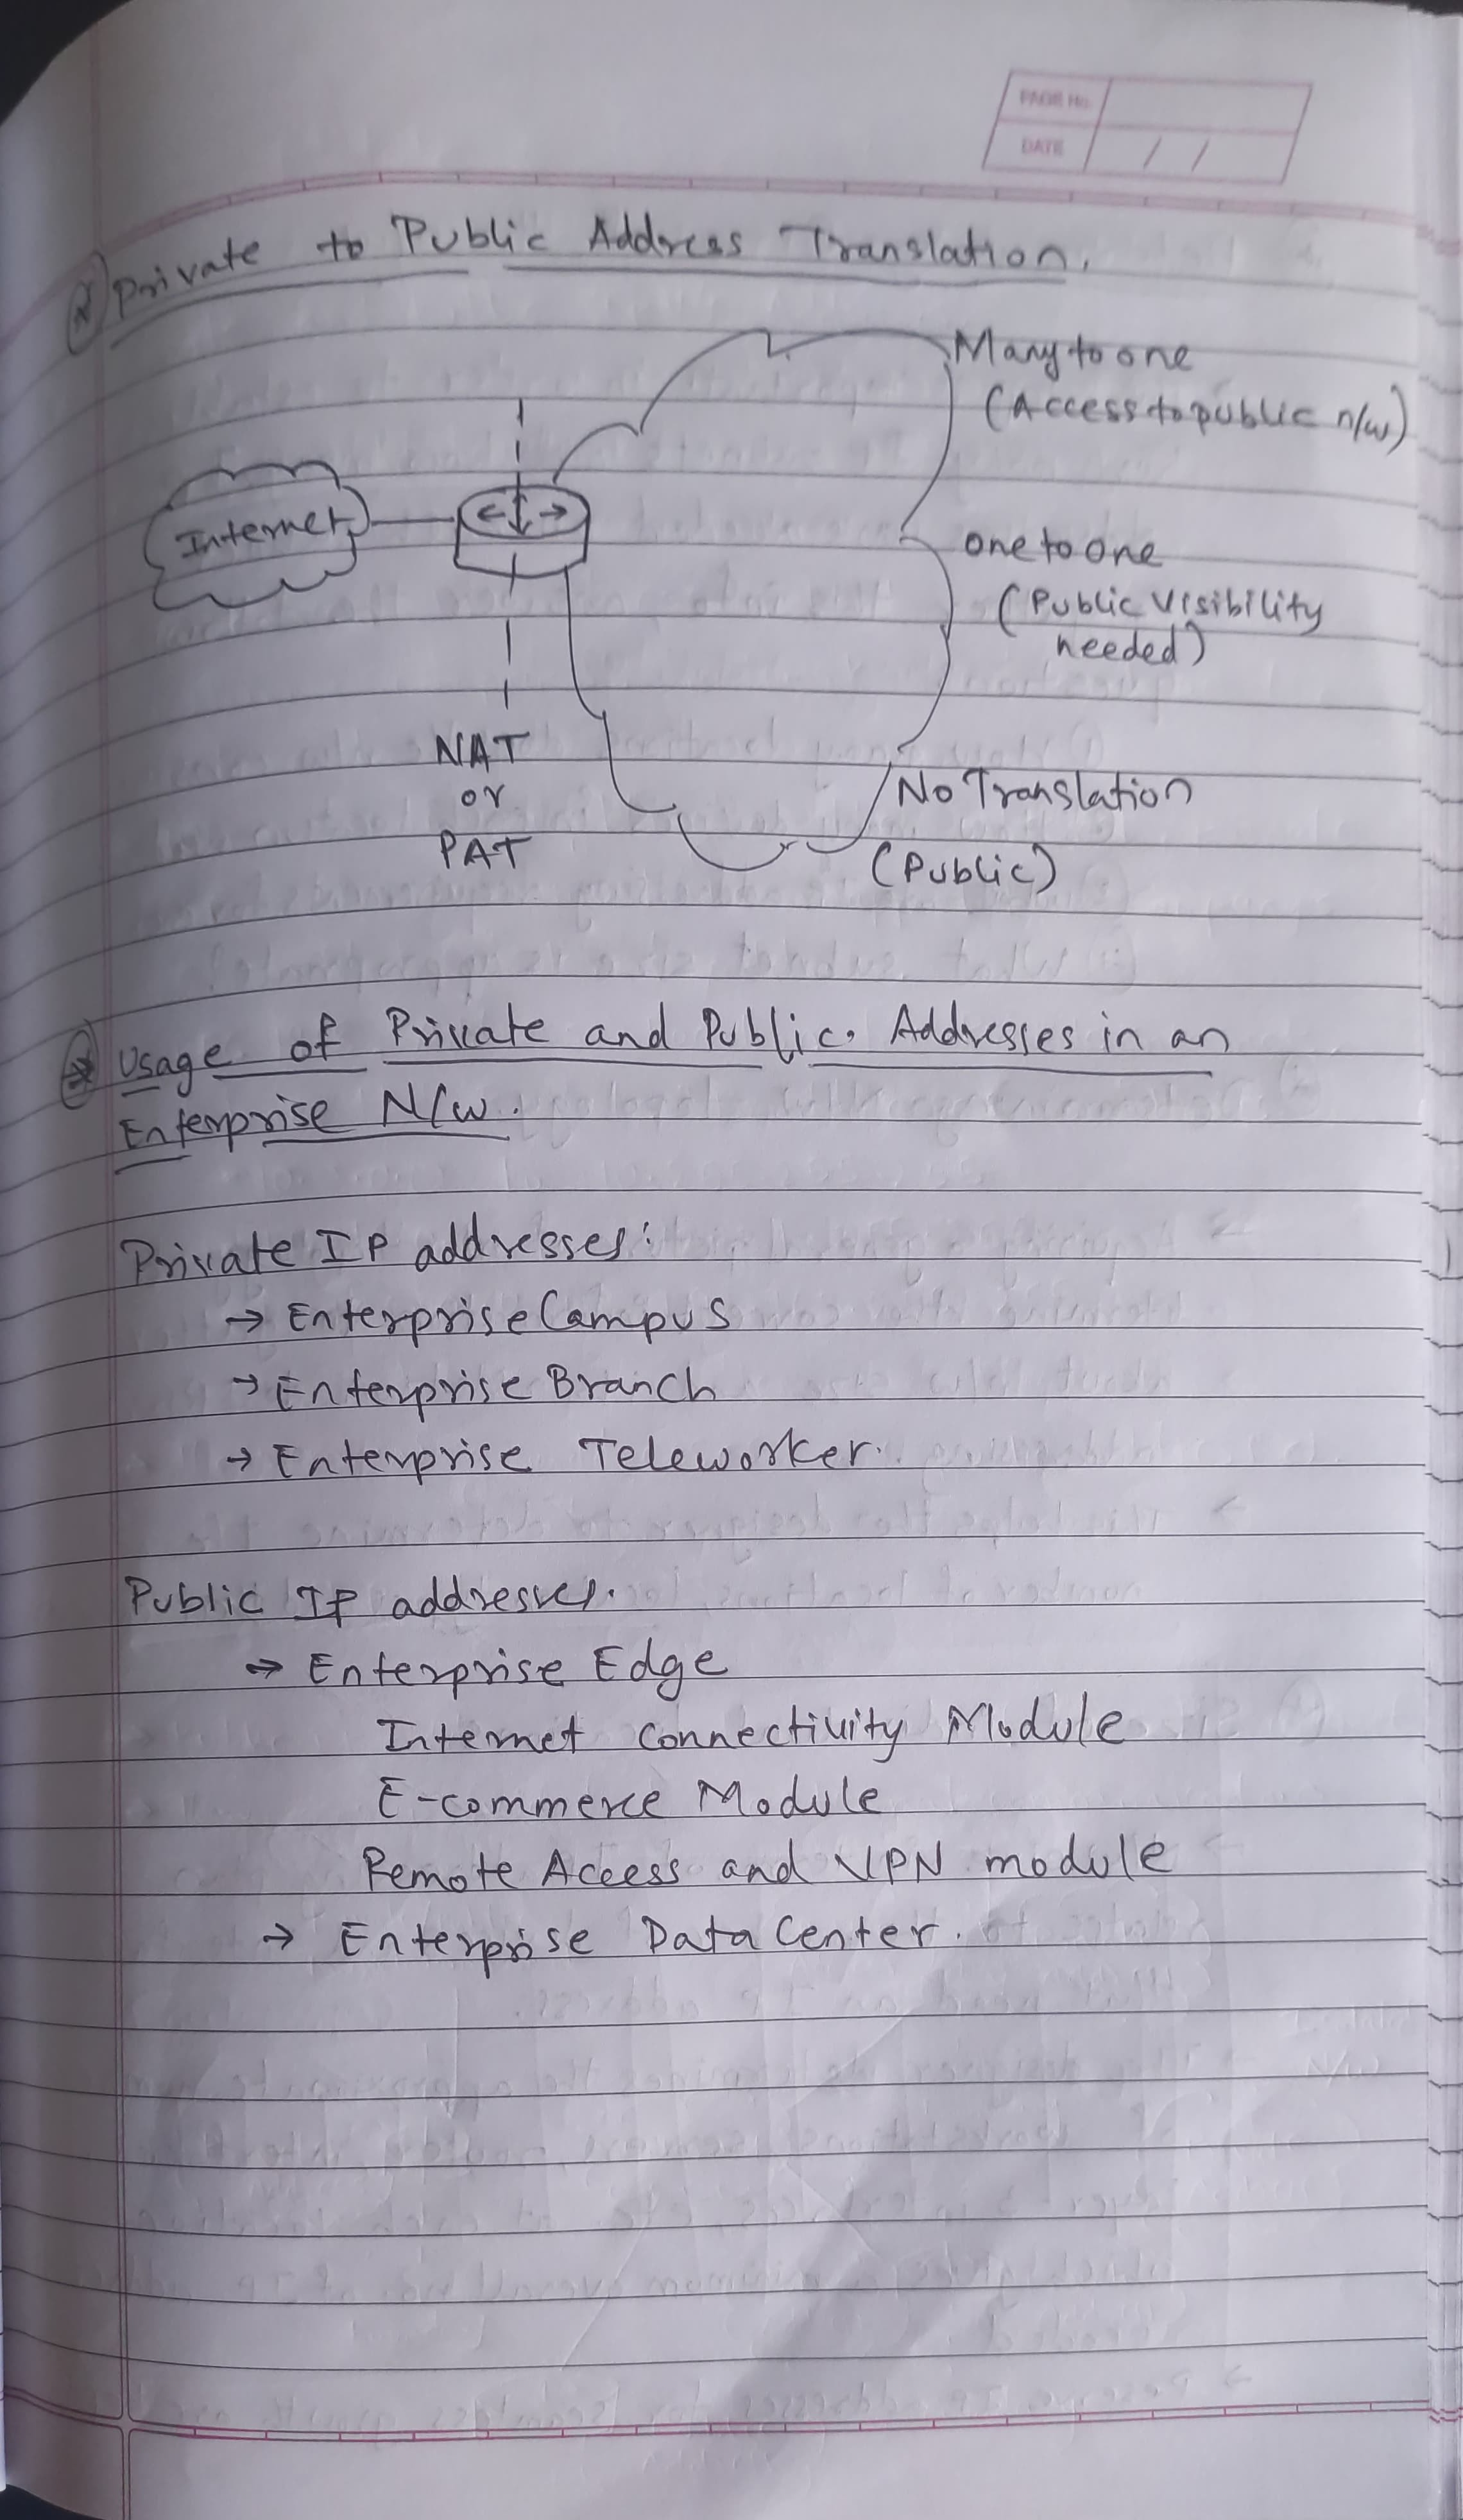 PAGE No.
DATE / /
Private to Public Address Translation.
Many to one
(Access to public n/w)
Internet
one to one
(Public Visibility
needed)
NAT
or
PAT
No Translation
(Public)
Usage of Private and Public. Addresses in an
Enterprise N/w.
Private IP addresses:
→ Enterprise Campus
→ Enterprise Branch
→ Enterprise Teleworker.
Public IP addresses.
→ Enterprise Edge
Internet Connectivity Module
E-commerce Module
Remote Access and VPN module
→ Enterprise Data Center.